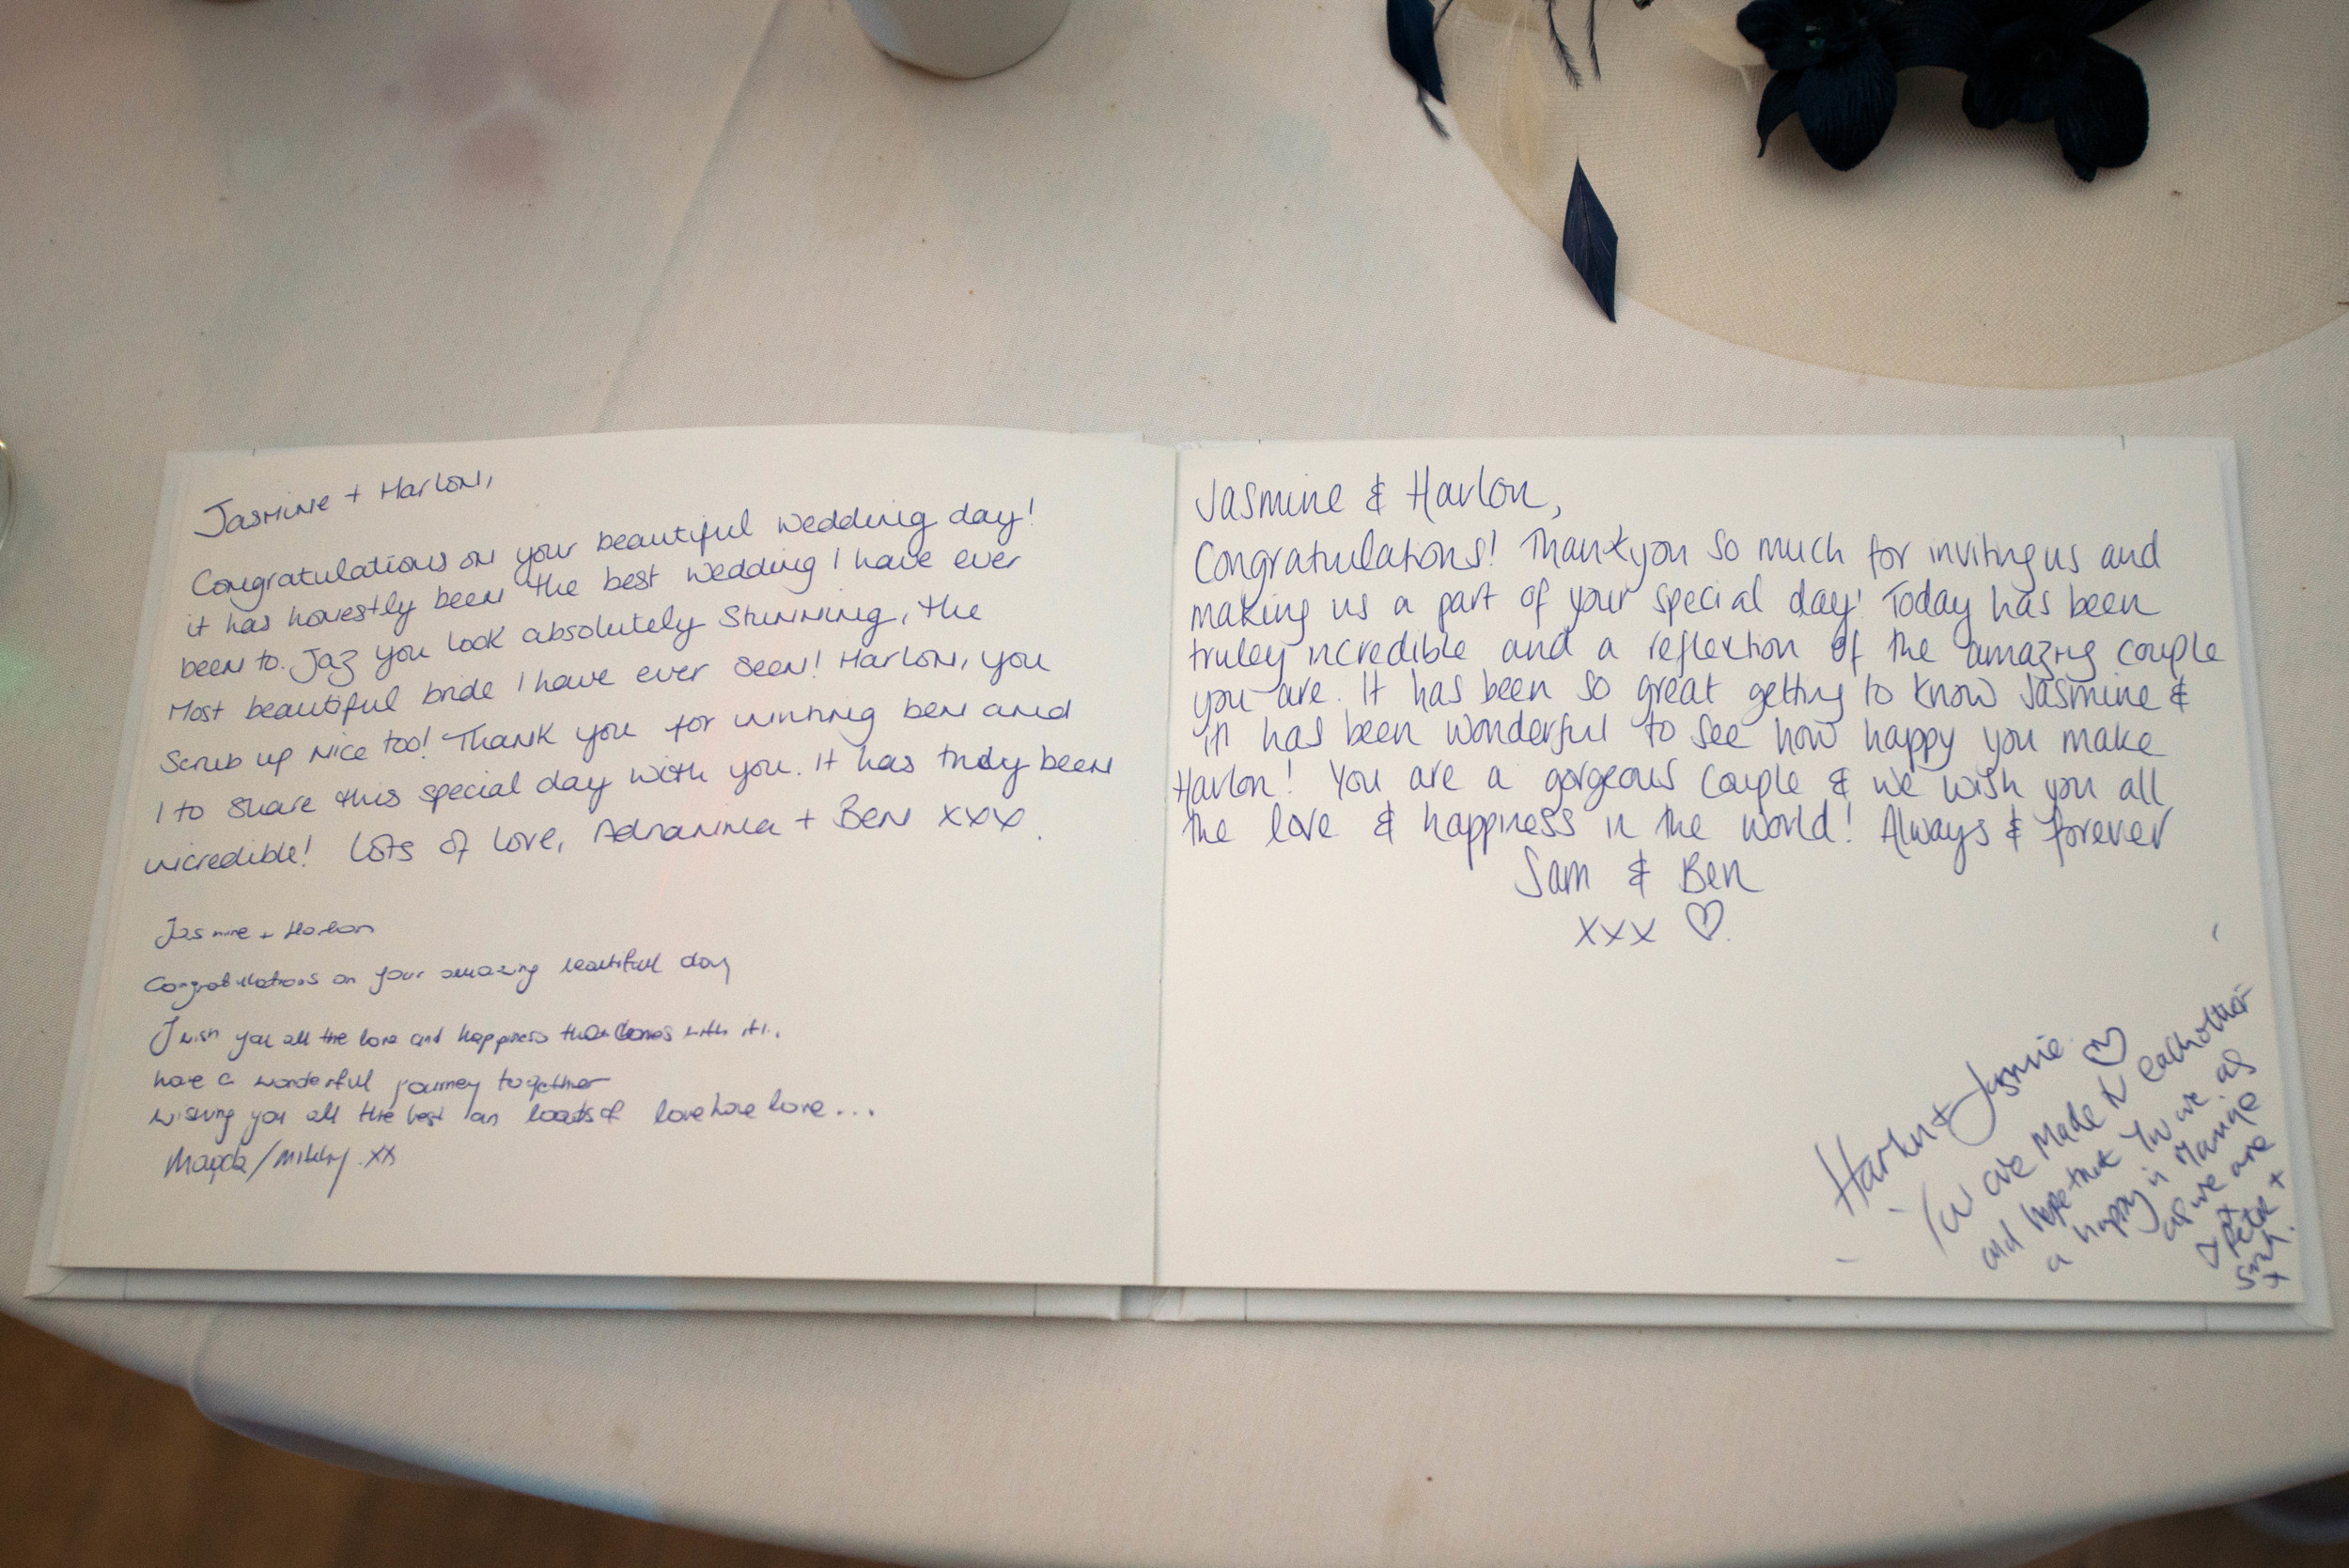 Jasmine + Harlon,
Congratulations on your beautiful wedding day!
it has honestly been the best wedding I have ever
been to. Jaz you look absolutely stunning, the
most beautiful bride I have ever seen! Harlon, you
scrub up nice too! Thank you for inviting ben and
I to share this special day with you. It has truly been
incredible! Lots of love, + Ben xxx.
Jasmine + Harlon
Congratulations on your amazing beautiful day
I wish you all the love and happiness that comes with it!.
have a wonderful journey together
wishing you all the best an loads of love love love...
Magda/ xx
Jasmine & Harlon,
Congratulations! Thankyou so much for inviting us and
making us a part of your special day! Today has been
truley incredible and a reflextion of the amazing couple
you are. It has been so great getting to know Jasmine &
it has been wonderful to see how happy you make
Harlon! You are a gorgeous couple & we wish you all
the love & happiness in the world! Always & forever
Sam & Ben
xxx ♡
Harlon + Jasmine ♡
You are made for eachother
and hope that you are as
happy in
as we are
♡ Pat
Peter +
+